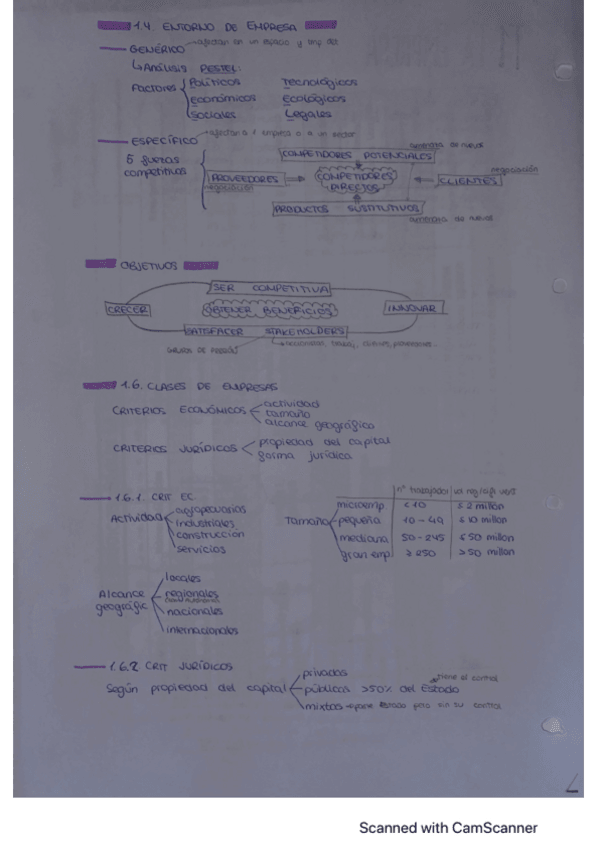 1.4. ENTORNO DE EMPRESA
GENÉRICO afectan en un espacio y
↳ Análisis PESTEL:
Factores
Políticos
Económicos
Sociales
Tecnológicos
Ecológicos
Legales
ESPECÍFICO afectan a 1 empresa o a un sector
5 fuerzas competitivas
COMPETIDORES POTENCIALES
amenaza de nuevos
PROVEEDORES
negociación
COMPETIDORES DIRECTOS
CLIENTES
negociación
PRODUCTOS SUSTITUTIVOS
amenaza de nuevos
OBJETIVOS
SER COMPETITIVA
CRECER
OBTENER BENEFICIOS
INNOVAR
SATISFACER STAKEHOLDERS
GRUPOS DE
1.6. CLASES DE EMPRESAS
CRITERIOS ECONÓMICOS
actividad
tamaño
alcance geográfico
CRITERIOS JURÍDICOS
propiedad del capital
forma jurídica
1.6.1. CRIT EC.
Actividad
agropecuarias
industriales
construccion
servicios
Tamaño
nº trabajador
microemp < 10 ≤ 2 millon
pequeña 10 - 49 ≤ 10 millon
mediana 50 - 245 ≤ 50 millon
gran emp ≥ 250 > 50 millon
Alcance geográfic
locales
regionales
nacionales
internacionales
1.6.2 CRIT JURÍDICOS
Según propiedad del capital
privadas
públicas >50% del Estado
tiene el control
mixtas Estado pero sin su control
Scanned with CamScanner